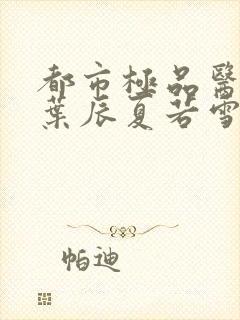 都市極品醫
葉辰夏若雪
帕迪